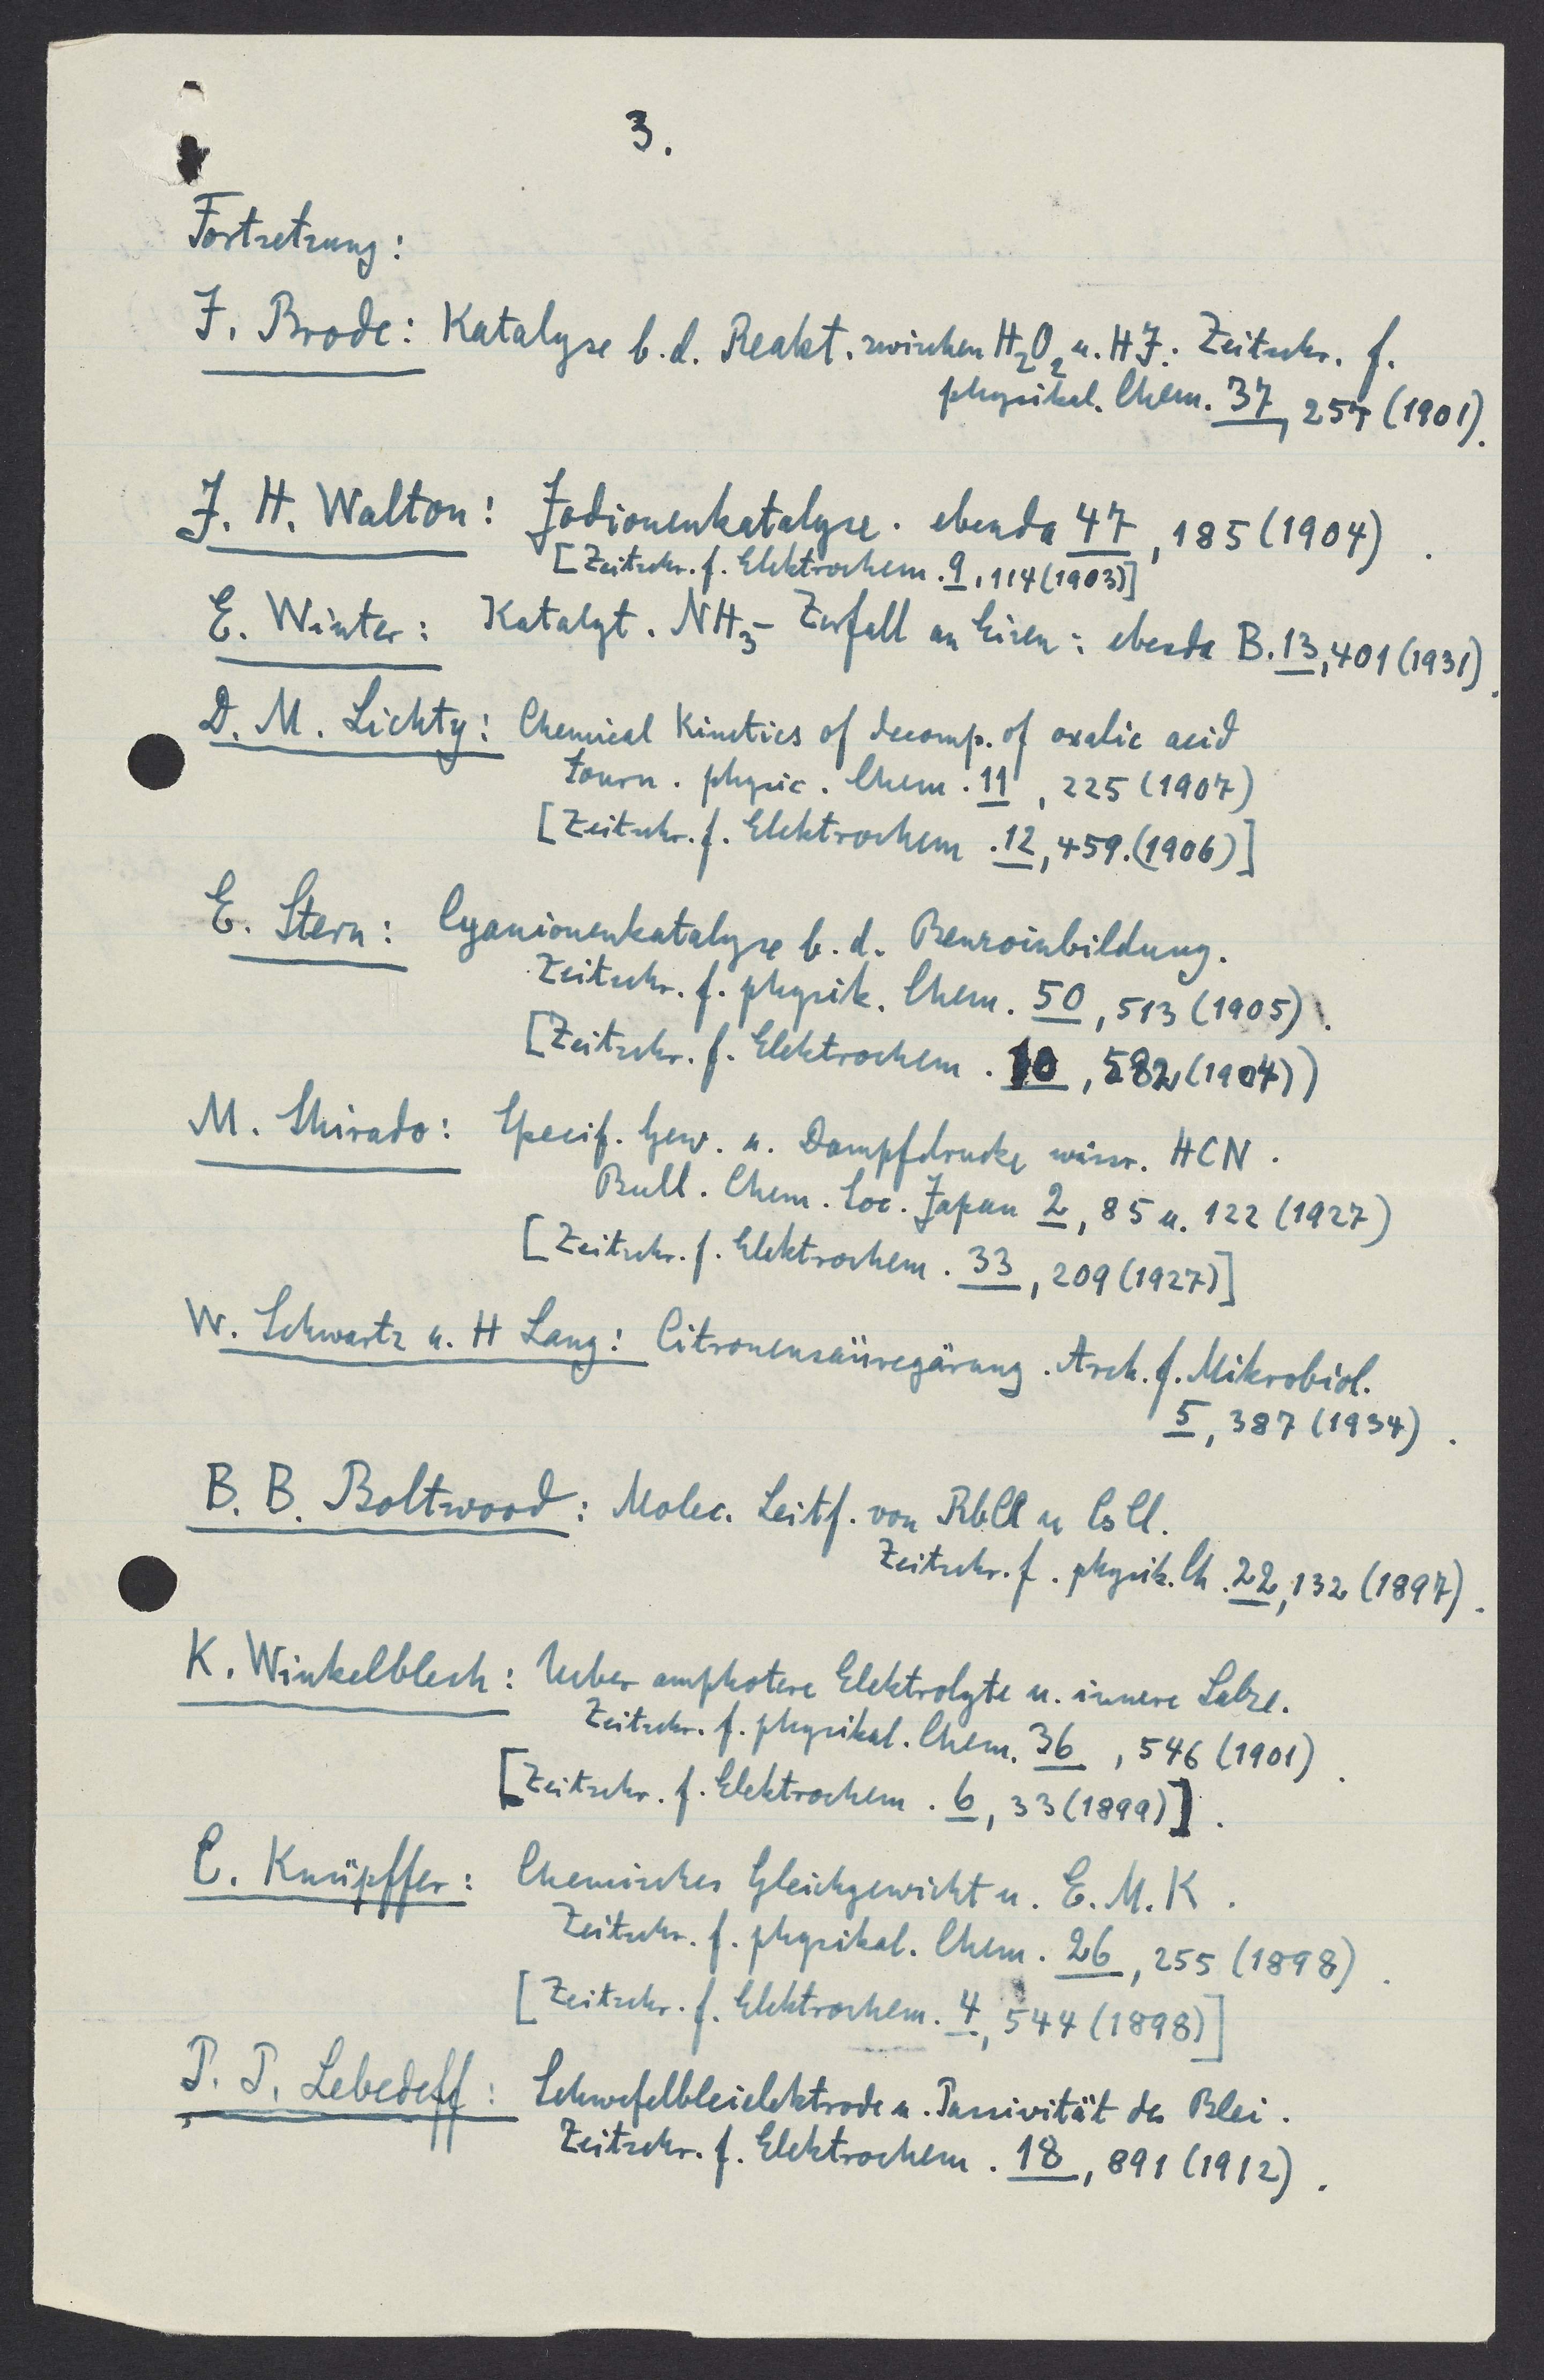 3.
Fortsetzung:
J. Brode: Katalyse b. d. Reakt. zwischen H₂O₂ u. HJ: Zeitschr. f.
physikal. Chem. 37, 257 (1901).
J. H. Walton: Jodionenkatalyse. ebenda 47, 185 (1904).
[Zeitschr. f. Elektrochem. 9, 114 (1903)]
E. Winter: Katalyt. NH₃- Zerfall an Eisen: ebenda B. 13, 401 (1931).
D. M. Lichty: Chemical Kinetics of decomp. of oxalic acid
Journ. physic. Chem. 11, 225 (1907)
[Zeitschr. f. Elektrochem. 12, 459. (1906)]
E. Stern: Cyanionenkatalyse b. d. Benzoinbildung.
Zeitschr. f. physik. Chem. 50, 513 (1905).
[Zeitschr. f. Elektrochem. 10, 582 (1904))
M. Shirado: Specif. Gew. u. Dampfdrucke wässr. HCN.
Bull. Chem. Soc. Japan 2, 85 u. 122 (1927)
[Zeitschr. f. Elektrochem. 33, 209 (1927)]
W. Schwartz u. H Lang: Citronensäuregärung. Arch. f. Mikrobiol.
5, 387 (1934).
B. B. Boltwood: Molec. Leitf. von RbCl u CsCl.
Zeitschr. f. physik. Ch. 22, 132 (1897).
K. Winkelblech: Ueber amphotere Elektrolyte u. innere Salze.
Zeitschr. f. physikal. Chem. 36, 546 (1901).
[Zeitschr. f. Elektrochem. 6, 33 (1899)].
C. Knüpffer: Chemisches Gleichgewicht u. E. M. K.
Zeitschr. f. physikal. Chem. 26, 255 (1898).
[Zeitschr. f. Elektrochem. 4, 544 (1898)]
P. P. Lebedeff: Schwefelbleielektrode u. Passivität des Blei.
Zeitschr. f. Elektrochem. 18, 891 (1912).